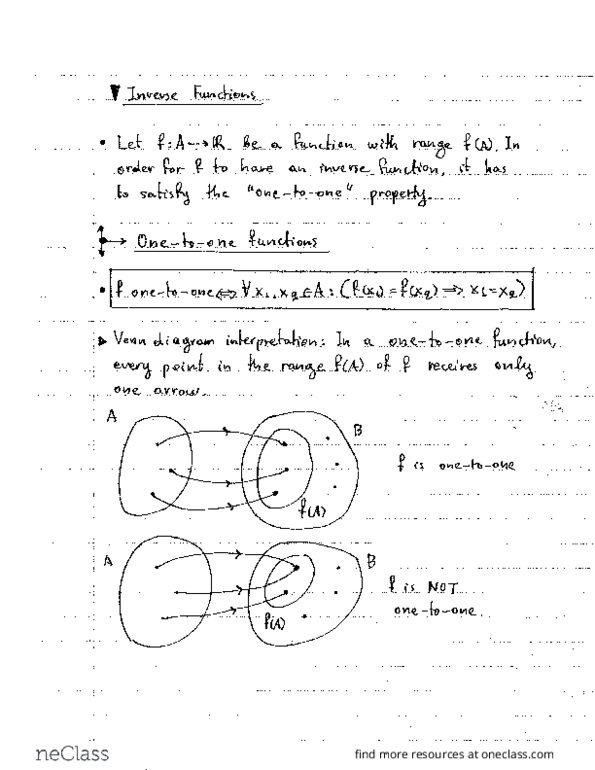 ▼ Inverse Functions
• Let f: A→ℝ be a function with range f(A). In
order for f to have an inverse function, it has
to satisfy the "one-to-one" property.
→ One-to-one functions
• f one-to-one ⇔ ∀x₁,x₂∈A: (f(x₁)=f(x₂) ⇒ x₁=x₂)
▸ Venn diagram interpretation: In a one-to-one function,
every point in the range f(A) of f receives only
one arrow.
A
B
f is one-to-one
f(A)
A
B
f is NOT
one-to-one.
f(A)
neClass
find more resources at oneclass.com